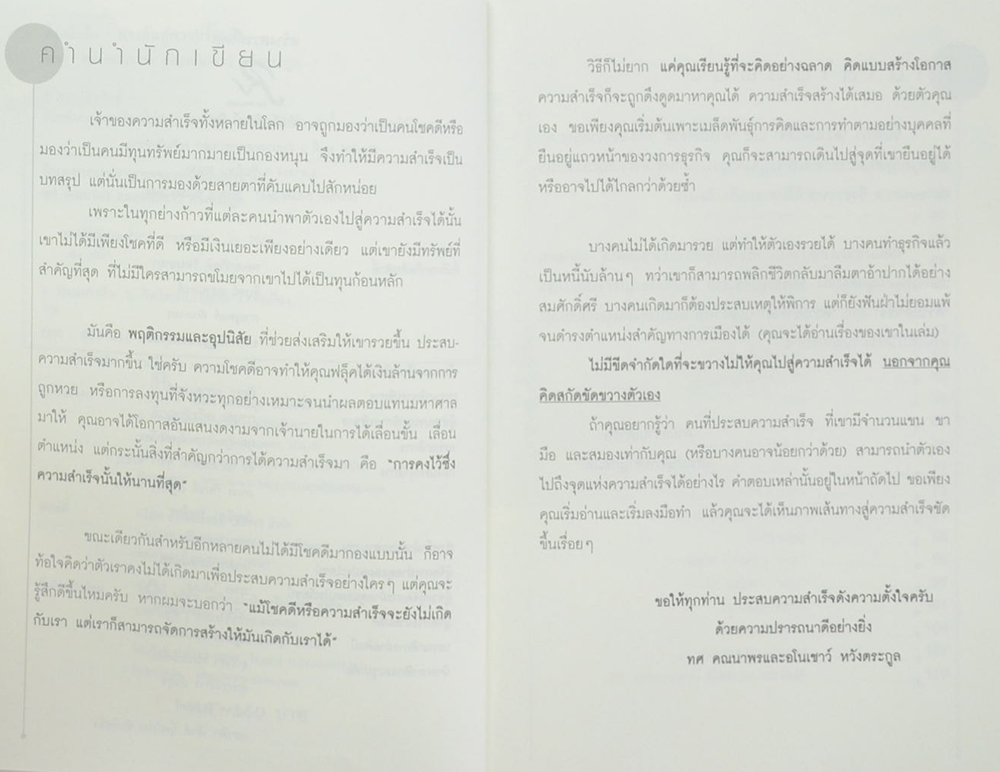 คำนำนักเขียน
เจ้าของความสำเร็จทั้งหลายในโลก อาจถูกมองว่าเป็นคนโชคดีหรือ
มองว่าเป็นคนมีทุนทรัพย์มากมายเป็นกองหนุน จึงทำให้มีความสำเร็จเป็น
บทสรุป แต่นั่นเป็นการมองด้วยสายตาที่คับแคบไปสักหน่อย
เพราะในทุกย่างก้าวที่แต่ละคนนำพาตัวเองไปสู่ความสำเร็จได้นั้น
เขาไม่ได้มีเพียงโชคที่ดี หรือมีเงินเยอะเพียงอย่างเดียว แต่เขายังมีทรัพย์ที่
สำคัญที่สุด ที่ไม่มีใครสามารถขโมยจากเขาไปได้เป็นทุนก้อนหลัก
มันคือ พฤติกรรมและอุปนิสัย ที่ช่วยส่งเสริมให้เขารวยขึ้น ประสบ-
ความสำเร็จมากขึ้น ใช่ครับ ความโชคดีอาจทำให้คุณฟลุ๊คได้เงินล้านจากการ
ถูกหวย หรือการลงทุนที่จังหวะทุกอย่างเหมาะจนนำผลตอบแทนมหาศาล
มาให้ คุณอาจได้โอกาสอันแสนงดงามจากเจ้านายในการได้เลื่อนขั้น เลื่อน
ตำแหน่ง แต่กระนั้นสิ่งที่สำคัญกว่าการได้ความสำเร็จมา คือ "การคงไว้ซึ่ง
ความสำเร็จนั้นให้นานที่สุด"
ขณะเดียวกันสำหรับอีกหลายคนไม่ได้มีโชคดีมากองแบบนั้น ก็อาจ
ท้อใจคิดว่าตัวเราคงไม่ได้เกิดมาเพื่อประสบความสำเร็จอย่างใครๆ แต่คุณจะ
รู้สึกดีขึ้นไหมครับ หากผมจะบอกว่า "แม้โชคดีหรือความสำเร็จจะยังไม่เกิด
กับเรา แต่เราก็สามารถจัดการสร้างให้มันเกิดกับเราได้"
วิธีก็ไม่ยาก แค่คุณเรียนรู้ที่จะคิดอย่างฉลาด คิดแบบสร้างโอกาส
ความสำเร็จก็จะถูกดึงดูดมาหาคุณได้ ความสำเร็จสร้างได้เสมอ ด้วยตัวคุณ
เอง ขอเพียงคุณเริ่มต้นเพาะเมล็ดพันธุ์การคิดและการทำตามอย่างบุคคลที่
ยืนอยู่แถวหน้าของวงการธุรกิจ คุณก็จะสามารถเดินไปสู่จุดที่เขายืนอยู่ได้
หรืออาจไปได้ไกลกว่าด้วยซ้ำ
บางคนไม่ได้เกิดมารวย แต่ทำให้ตัวเองรวยได้ บางคนทำธุรกิจแล้ว
เป็นหนี้นับล้านๆ ทว่าเขาก็สามารถพลิกชีวิตกลับมาลืมตาอ้าปากได้อย่าง
สมศักดิ์ศรี บางคนเกิดมาก็ต้องประสบเหตุให้พิการ แต่ก็ยังฟันฝ่าไม่ยอมแพ้
จนดำรงตำแหน่งสำคัญทางการเมืองได้ (คุณจะได้อ่านเรื่องของเขาในเล่ม)
ไม่มีขีดจำกัดใดที่จะขวางไม่ให้คุณไปสู่ความสำเร็จได้ นอกจากคุณ
คิดสกัดขัดขวางตัวเอง
ถ้าคุณอยากรู้ว่า คนที่ประสบความสำเร็จ ที่เขามีจำนวนแขน ขา
มือ และสมองเท่ากับคุณ (หรือบางคนอาจน้อยกว่าด้วย) สามารถนำตัวเอง
ไปถึงจุดแห่งความสำเร็จได้อย่างไร คำตอบเหล่านั้นอยู่ในหน้าถัดไป ขอเพียง
คุณเริ่มอ่านและเริ่มลงมือทำ แล้วคุณจะได้เห็นภาพเส้นทางสู่ความสำเร็จชัด
ขึ้นเรื่อยๆ
ขอให้ทุกท่าน ประสบความสำเร็จดังความตั้งใจครับ
ด้วยความปรารถนาดีอย่างยิ่ง
ทศ คณนาพรและอโนเชาว์ หวังตระกูล